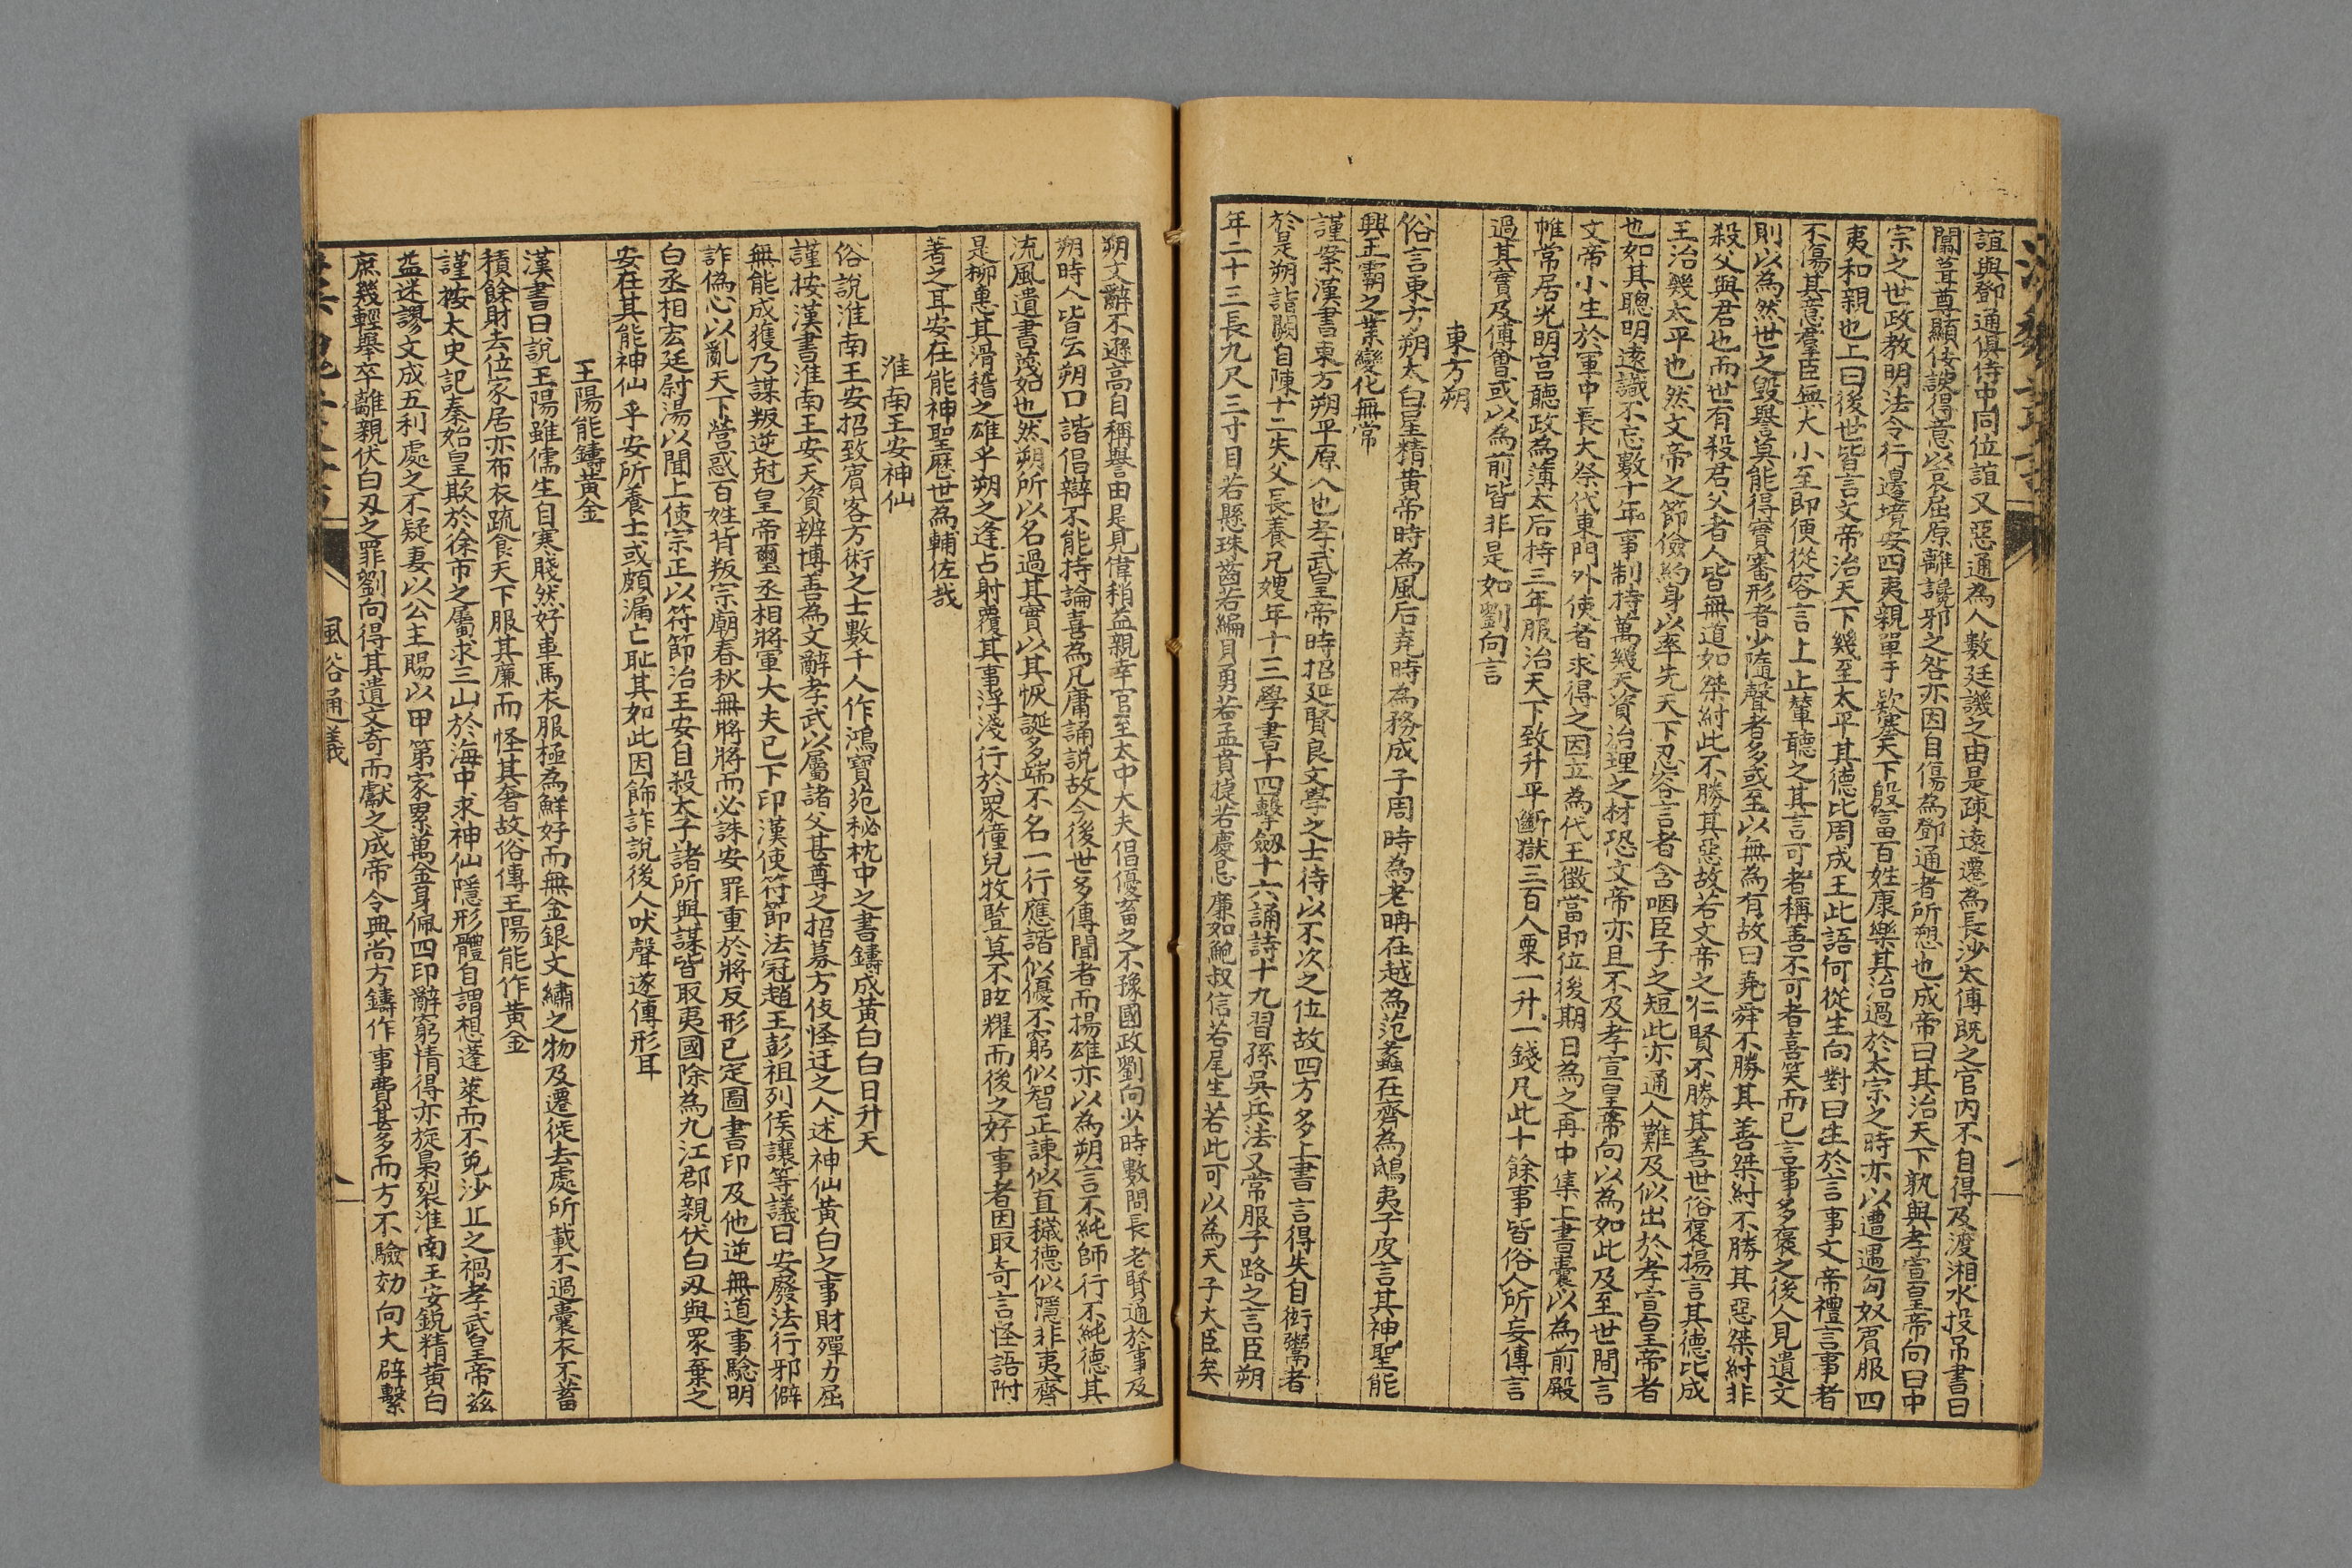 誼與鄧通俱侍中同位誼又惡通為人數廷譏之由是疎遠遷為長沙太傅既之官内不自得及渡湘水投吊書曰
闒茸尊顯佞諛得意以哀屈原離讒邪之咎亦因自傷為鄧通者所愬也成帝曰其治天下孰與孝宣皇帝向曰中
宗之世政教明法令行邊境安四夷親單于欵塞天下殷富百姓康樂其治過於太宗之時亦以遭遇匈奴賓服四
夷和親也上曰後世皆言文帝治天下幾至太平其德比周成王此語何從生向對曰生於言事文帝禮言事者
不傷其意羣臣無大小至即便從容言上止輦聽之其言可者稱善不可者喜笑而已言事多褒之後人見遺文
則以為然世之毀譽莫能得實審形者少隨聲者多或至以無為有故曰堯舜不勝其善桀紂不勝其惡桀紂非
殺父與君也而世有殺君父者人皆無道如桀紂此不勝其惡故若文帝之仁賢不勝其善世俗褒揚言其德比成
王治幾太平也然文帝之節儉約身以率先天下忍容言者含咽臣子之短此亦通人難及似出於孝宣皇帝者
也如其聰明遠識不忘數十年事制持萬幾天資治理之材恐文帝亦且不及孝宣皇帝向以為如此及至世間言
文帝小生於軍中長大祭代東門外使者求得之因立為代王徵當即位後期日為之再中集上書囊以為前殿
帷常居光明宫聽政為薄太后持三年服治天下致升平斷獄三百人粟一升一錢凡此十餘事皆俗人所妄傳言
過其實及傅會或以為前皆非是如劉向言
東方朔
俗言東方朔太白星精黄帝時為風后堯時為務成子周時為老聃在越為范蠡在齊為鴟夷子皮言其神聖能
興王霸之業變化無常
謹案漢書東方朔平原人也孝武皇帝時招延賢良文學之士待以不次之位故四方多上書言得失自衒鬻者
於是朔詣闕自陳十二失父長養兄嫂年十三學書十四擊劔十六誦詩十九習孫吳兵法又常服子路之言臣朔
年二十三長九尺三寸目若懸珠齒若編貝勇若孟賁捷若慶忌廉如鮑叔信若尾生若此可以為天子大臣矣
朔文辭不遜高自稱譽由是見偉稍益親幸官至太中大夫倡優畜之不豫國政劉向少時數問長老賢通於事及
朔時人皆云朔口諧倡辯不能持論喜為凡庸誦説故今後世多傳聞者而揚雄亦以為朔言不純師行不純德其
流風遺書蔑如也然朔所以名過其實以其恢誕多端不名一行應諧似優不窮似智正諫似直穢德似隱非夷齊
是柳惠其滑稽之雄乎朔之逢占射覆其事浮淺行於眾僮兒牧豎莫不眩耀而後之好事者因取奇言怪語附
著之耳安在能神聖歷世為輔佐哉
淮南王安神仙
俗説淮南王安招致賓客方術之士數千人作鴻寶苑秘枕中之書鑄成黄白白日升天
謹按漢書淮南王安天資辨博善為文辭孝武以屬諸父甚尊之招募方伎怪迂之人述神仙黄白之事財殫力屈
無能成獲乃謀叛逆尅皇帝璽丞相將軍大夫已下印漢使符節法冠趙王彭祖列侯讓等議曰安廢法行邪僻
詐偽心以亂天下營惑百姓背叛宗廟春秋無將將而必誅安罪重於將反形已定圖書印及他逆無道事驗明
白丞相宏廷尉湯以聞上使宗正以符節治王安自殺太子諸所與謀皆取夷國除為九江郡親伏白刃與眾棄之
安在其能神仙乎安所養士或頗漏亡耻其如此因飾詐説後人吠聲遂傳形耳
王陽能鑄黄金
漢書曰説王陽雖儒生自寒賤然好車馬衣服極為鮮好而無金銀文繡之物及遷徙去處所載不過囊衣不蓄
積餘財去位家居亦布衣疏食天下服其廉而怪其奢故俗傳王陽能作黄金
謹按太史記秦始皇欺於徐市之屬求三山於海中求神仙隱形體自謂想蓬萊而不免沙丘之禍孝武皇帝兹
益迷謬文成五利處之不疑妻以公主賜以甲第家累萬金身佩四印辭窮情得亦旋梟裂淮南王安鋭精黄白
庶幾輕舉卒離親伏白刃之罪劉向得其遺文奇而獻之成帝令典尚方鑄作事費甚多而方不驗効向大辟繫
風俗通義
八